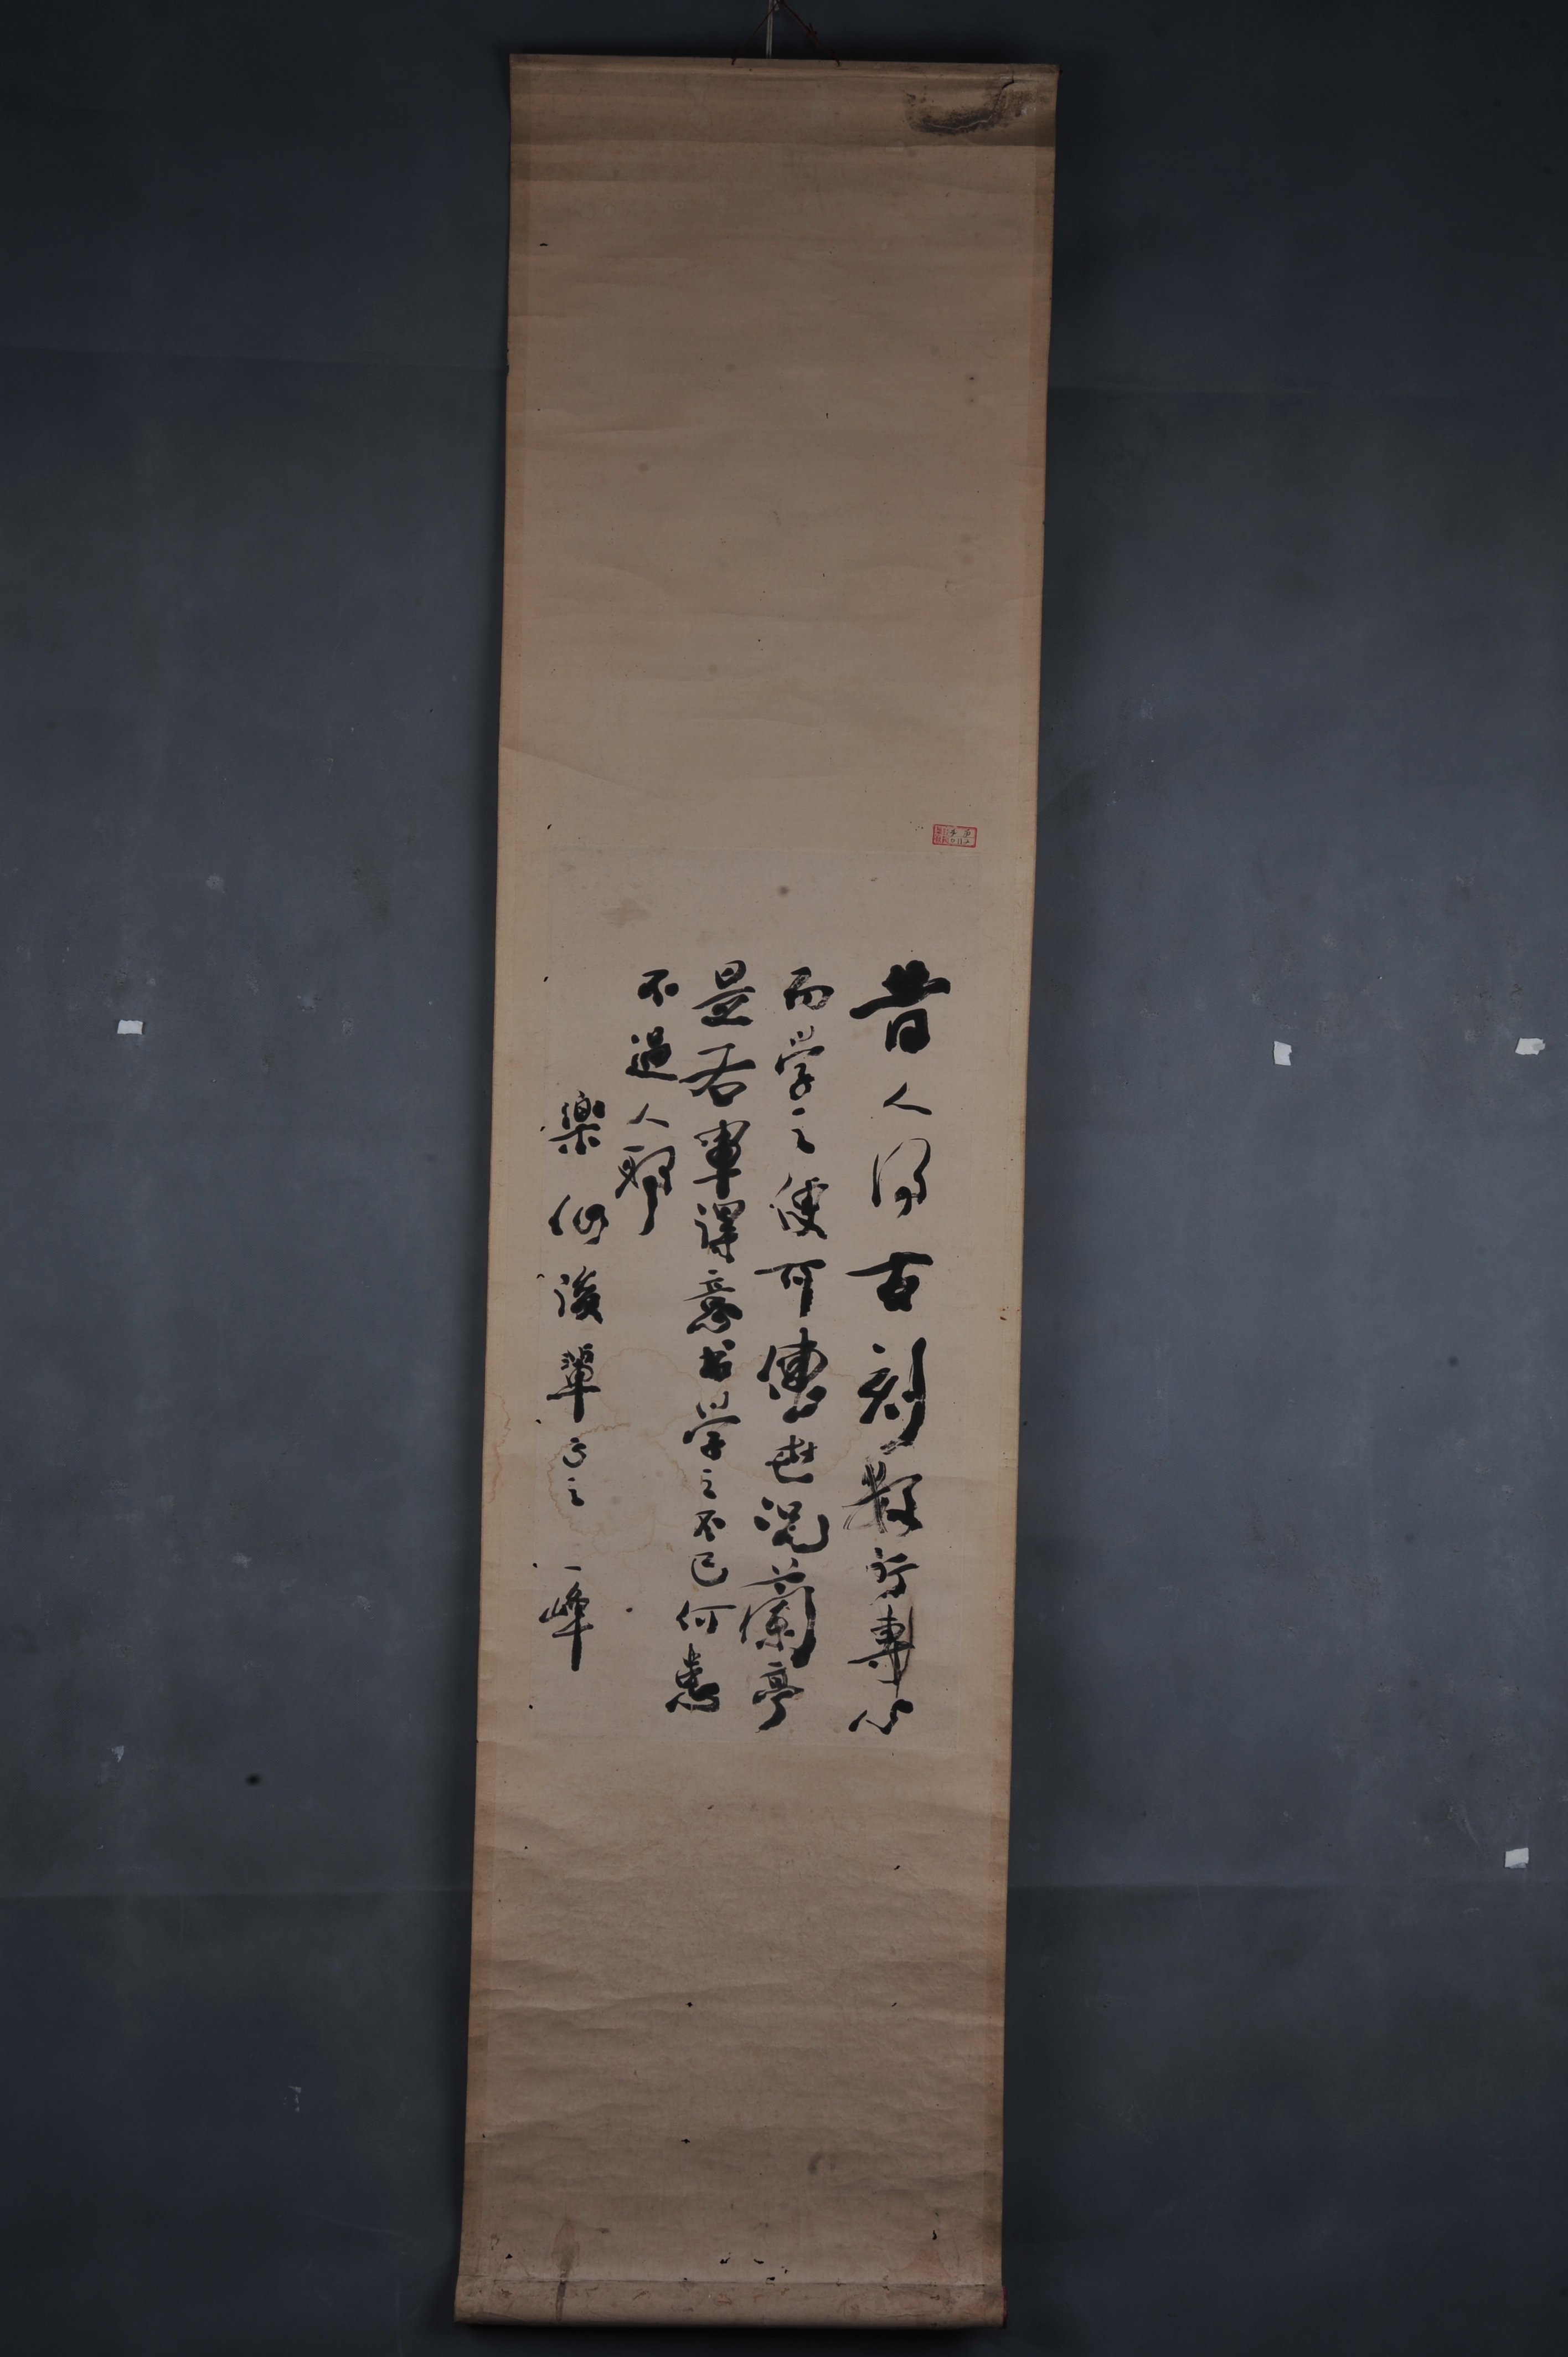 昔人得古刻數行專心
而學之便可傳世況蘭亭
是右軍得意書學之不已何患
不過人耶
樂仙後輩正之 一峰